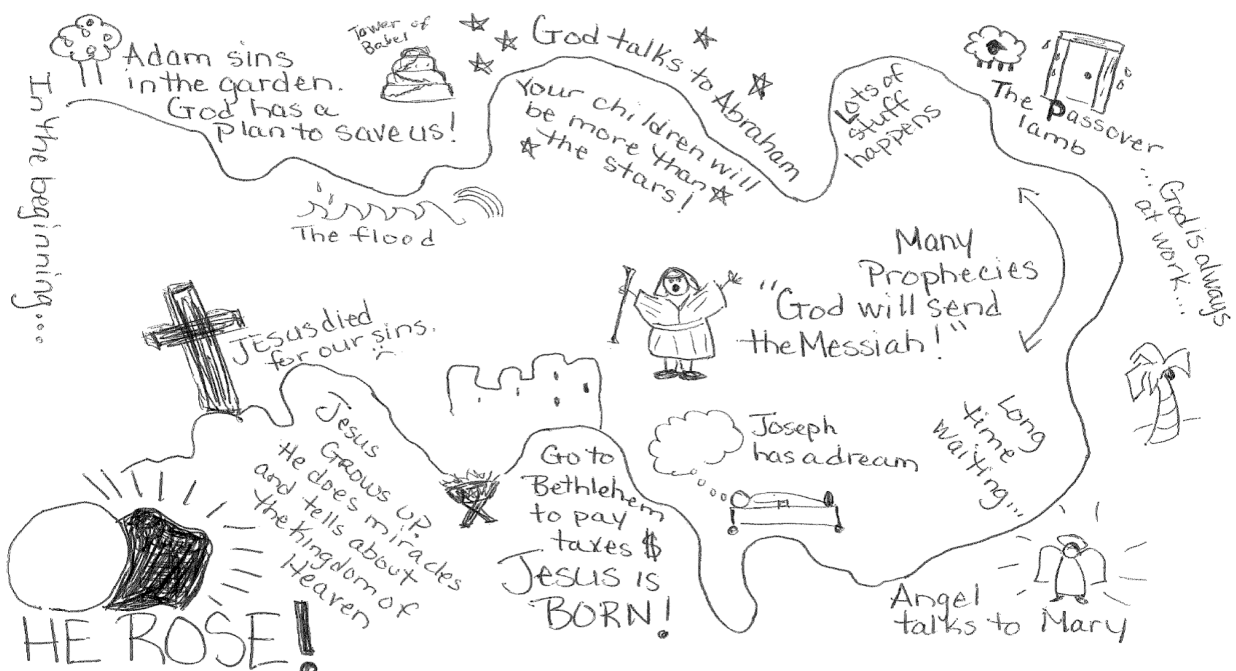 In the beginning...
Adam sins
in the garden.
God has a
plan to save us!
The flood
Tower of
Babel
God talks to Abraham
Your children will
be more than
the stars!
Lots of
stuff
happens
The Passover
lamb
...God is always
at work...
Many
Prophecies
"God will send
the Messiah!"
Long
time
waiting...
Angel
talks to Mary
Joseph
has a dream
Go to
Bethlehem
to pay
taxes $
Jesus is
BORN!
Jesus
Grows up.
He does miracles
and tells about
the Kingdom of
Heaven
Jesus died
for our sins.
HE ROSE!